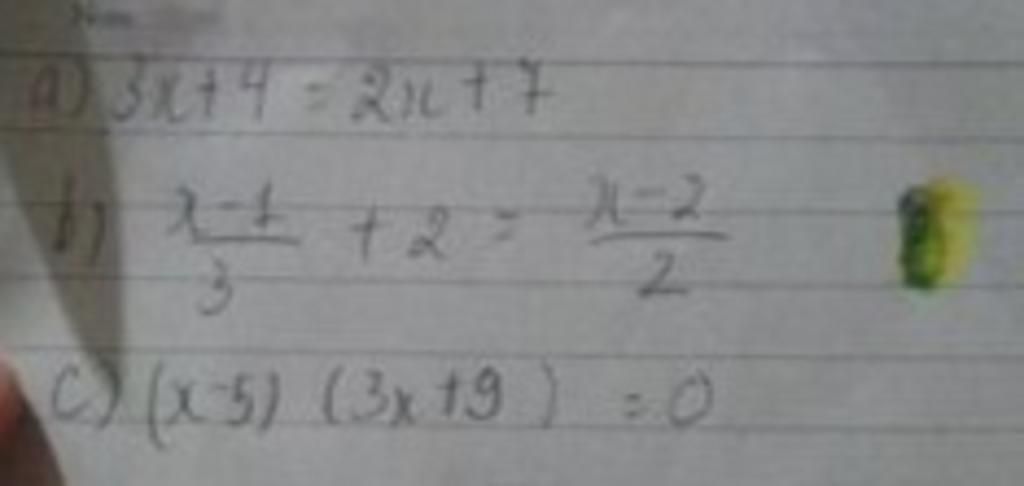 a) 3x+4 = 2x+7
b) x-1/3 + 2 = x-2/2
c) (x-5) (3x+9) = 0